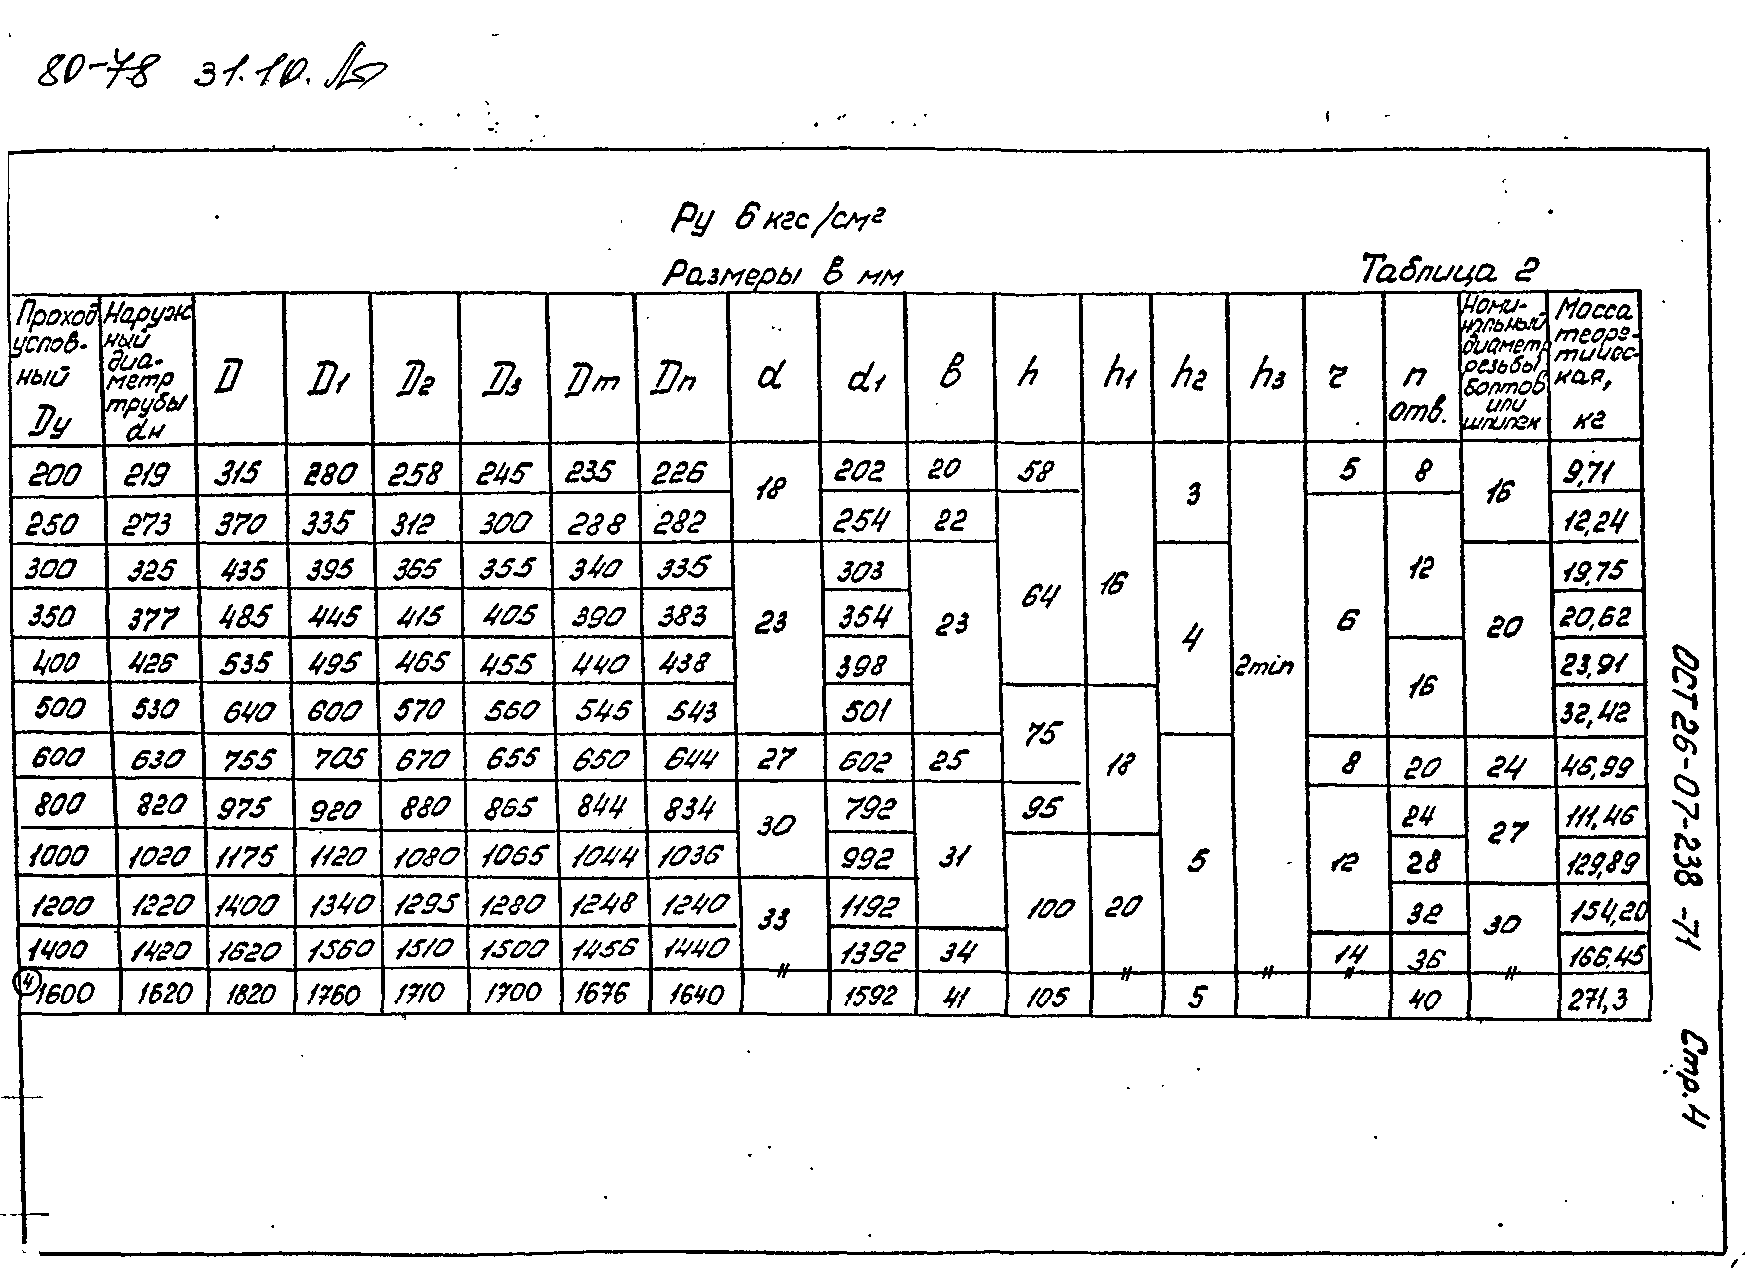 80-78 31.10.
Ру 6 кгс/см²
Размеры в мм
Таблица 2
Проход условный Dу | Наружный диаметр трубы dн | D | D1 | D2 | D3 | Dт | Dп | d | d1 | в | h | h1 | h2 | h3 | r | n отв. | Номинальный диаметр резьбы болтов или шпилек | Масса теоретическая, кг
200 219 315 280 258 245 235 226 18 202 20 58 16 3 2min 5 8 16 9,71
250 273 370 335 312 300 288 282 254 22 64 6 12 12,24
300 325 435 395 365 355 340 335 23 303 23 4 20 19,75
350 377 485 445 415 405 390 383 354 20,62
400 426 535 495 465 455 440 438 398 16 23,91
500 530 640 600 570 560 545 543 501 75 18 32,42
600 630 755 705 670 655 650 644 27 602 25 5 8 20 24 46,99
800 820 975 920 880 865 844 834 30 792 31 95 12 24 27 111,46
1000 1020 1175 1120 1080 1065 1044 1036 992 100 20 28 129,89
1200 1220 1400 1340 1295 1280 1248 1240 33 1192 32 30 154,20
1400 1420 1620 1560 1510 1500 1456 1440 1392 34 14 36 166,45
④ 1600 1620 1820 1760 1710 1700 1676 1640 " 1592 41 105 " 5 " " 40 " 271,3
ОСТ 26-07-238-71 Стр. 4